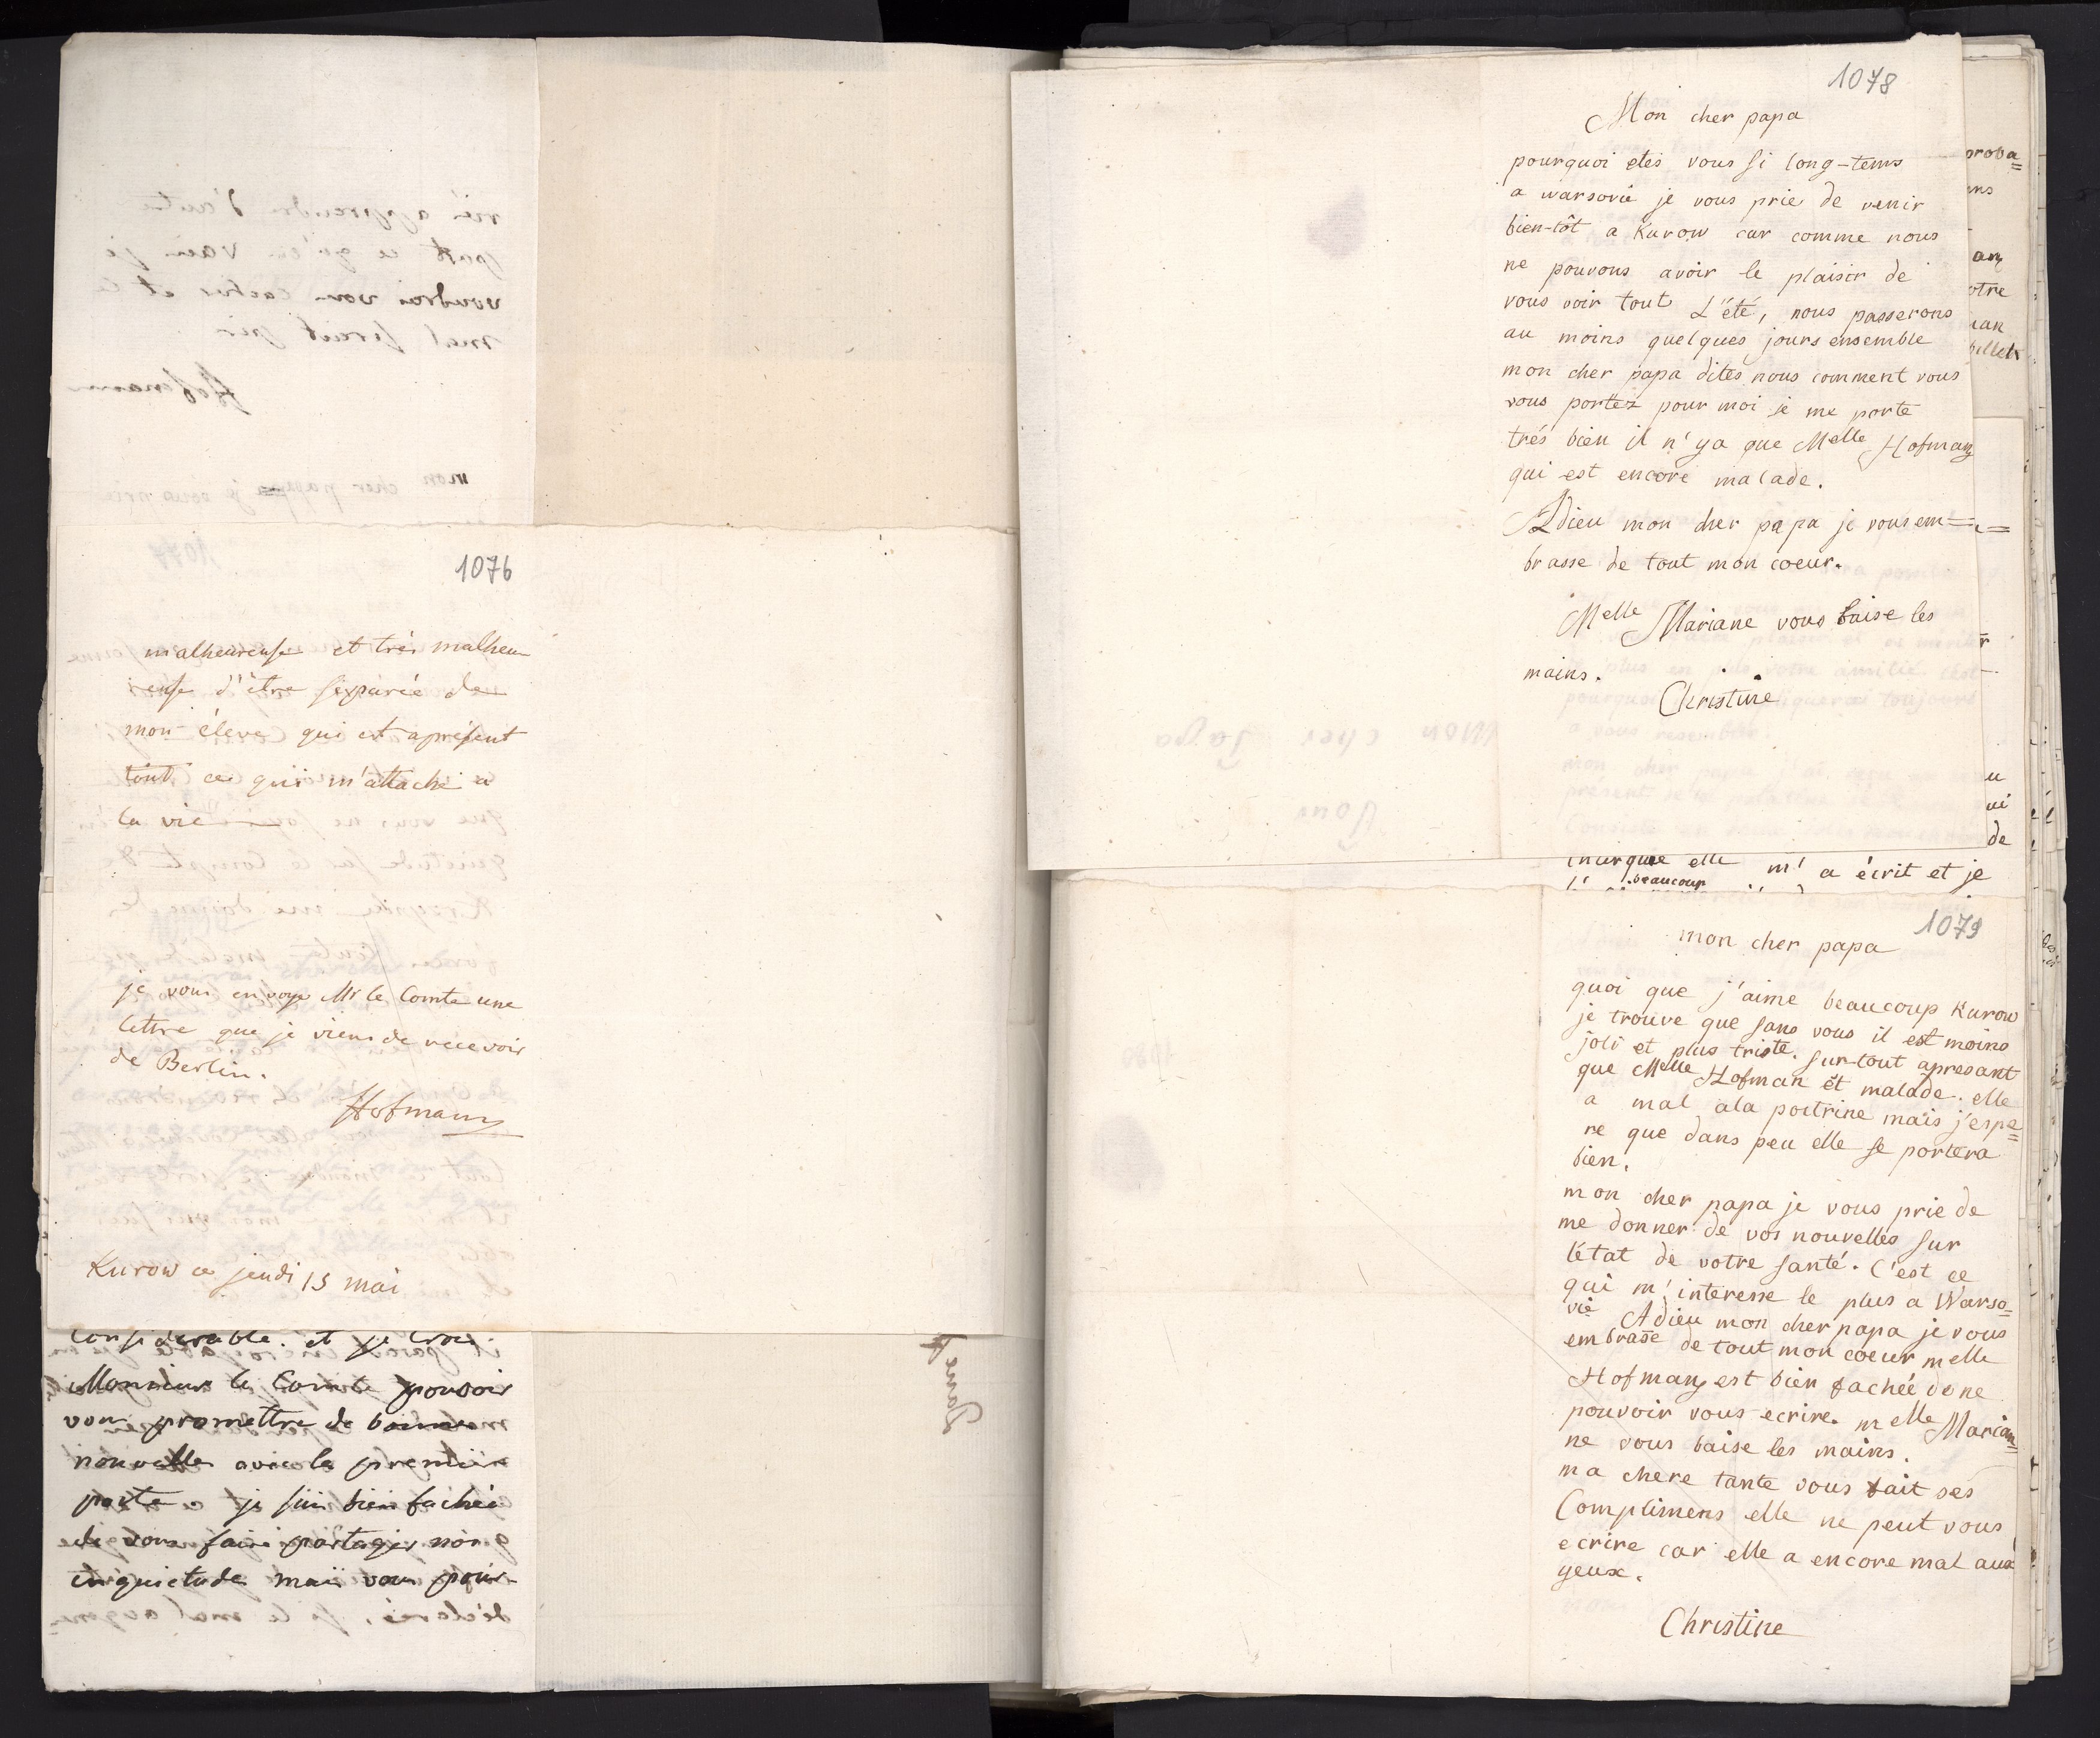 1076
malheureuse et très malheu
reuse d'être séparée de
mon éleve qui est apresent
tout ce qui m'attache a
la vie
je vous envoye Mr le Comte une
lettre que je viens de recevoir
de Berlin.
Hofmann
Kurow ce jeudi 15 mai
considerable. et je crois
Monsieur le Comte pouvoir
vous promettre de bonnes
nouvelles avec la premiere
poste je suis bien fachée
de vous faire partager nos
inquietude mais vous pour-
1078
Mon cher papa
pourquoi etes vous si long-tems
a warsovie je vous prie de venir
bien-tôt a Kurow car comme nous
ne pouvons avoir le plaisir de
vous voir tout L'été, nous passerons
au moins quelques jours ensemble
mon cher papa dites nous comment vous
vous portez pour moi je me porte
trés bien il n'ya que Melle Hofman
qui est encore malade.
Adieu mon cher papa je vous em=
brasse de tout mon coeur.
Melle Mariane vous baise les
mains.
Christine
proba=
ans
otre
billet
u
de
elle m'a écrit et je
beaucoup
1079
mon cher papa
quoi que j'aime beaucoup Kurow
je trouve que sans vous il est moins
joli et plus triste. sur-tout apresant
que Melle Hofman et malade. elle
a mal ala poitrine mais j'espe=
re que dans peu elle se portera
bien.
mon cher papa je vous prie de
me donner de vos nouvelles sur
l'etat de votre santé. C'est ce
qui m'interesse le plus a Warso=
vie Adieu mon cher papa je vous
embrasse de tout mon coeur melle
Hofman est bien fachée de ne
pouvoir vous ecrire. melle Marian=
ne vous baise les mains.
ma chere tante vous fait ses
Complimens elle ne peut vous
ecrire car elle a encore mal aux
yeux.
Christine